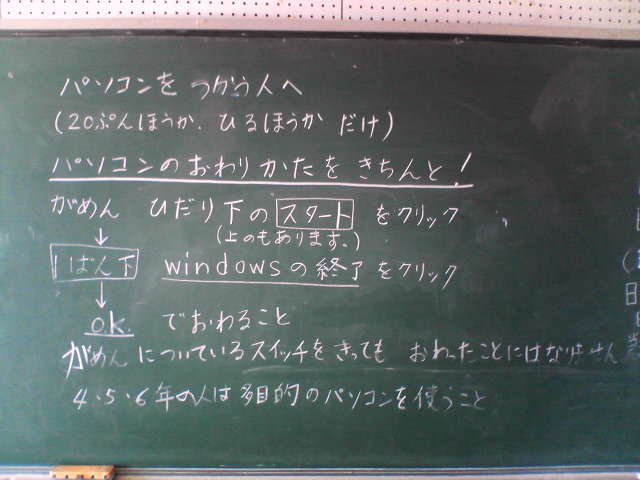 パソコンを つかう人へ
(20ぷんほうか. ひるほうか だけ)
パソコンのおわりかたをきちんと!
がめん ひだり下の スタート をクリック
(上のもあります。)
いちばん下 windowsの終了をクリック
ok. でおわること
がめんについているスイッチをきっても おわったことにはなりません
4・5・6年の人は多目的のパソコンを使うこと
日